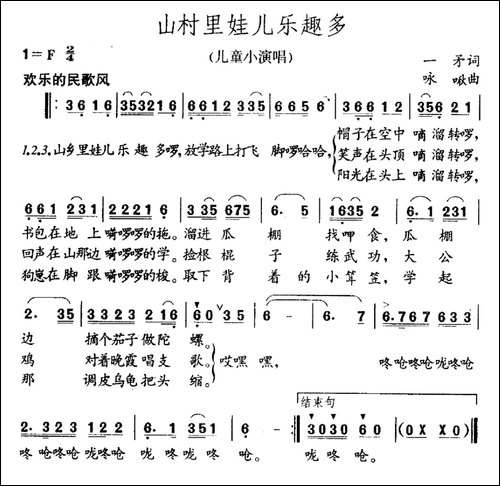 山村里娃儿乐趣多
1=F 2/4
(儿童小演唱)
一 矛词
咏 啾曲
欢乐的民歌风
‖: 3 6 1 6 | 35321 6 | 6 6 1 2 335 | 6 6 5 6 | 3 6 6 1 2 | 356 2 1 |
1.2.3.山乡里娃儿乐 趣 多啰,放学路上打飞 脚啰哈哈,
帽子在空中 嘀 溜转啰,
笑声在头顶 嘀 溜转啰,
阳光在头上 嘀 溜转啰,
6 6 1 231 | 2 2 2 1 6 | 3 35 675 | 6. 5 | 1635 2 | 6. 1 231 |
书包在地 上 嗬啰啰的拖。溜进 瓜 棚 找呷 食, 瓜 棚
回声在山那边 嗬啰啰的学。捡根 棍 子 练武 功, 大 公
狗崽在脚 跟 嗬啰啰的梭。取下 背 着 的小 笠, 学 起
2. 35 | 3 3 2 1 2 | 6 0 35 | 3 - | 3 - | 6. 7 6 7 6 3 3 |
边 摘个茄子做陀 螺。
鸡 对着晚霞唱支 歌。
那 调皮乌龟把头 缩。
哎嘿 嘿,
咚呛咚呛咙咚呛
2. 3 2 3 1 2 2 | 6. 1 351 | 6 - :‖ 3030 60 | (0 X X 0) ‖
结束句
咚 呛咚呛 咙咚呛 咙 咚咙 咚 呛。 咙咚 呛。